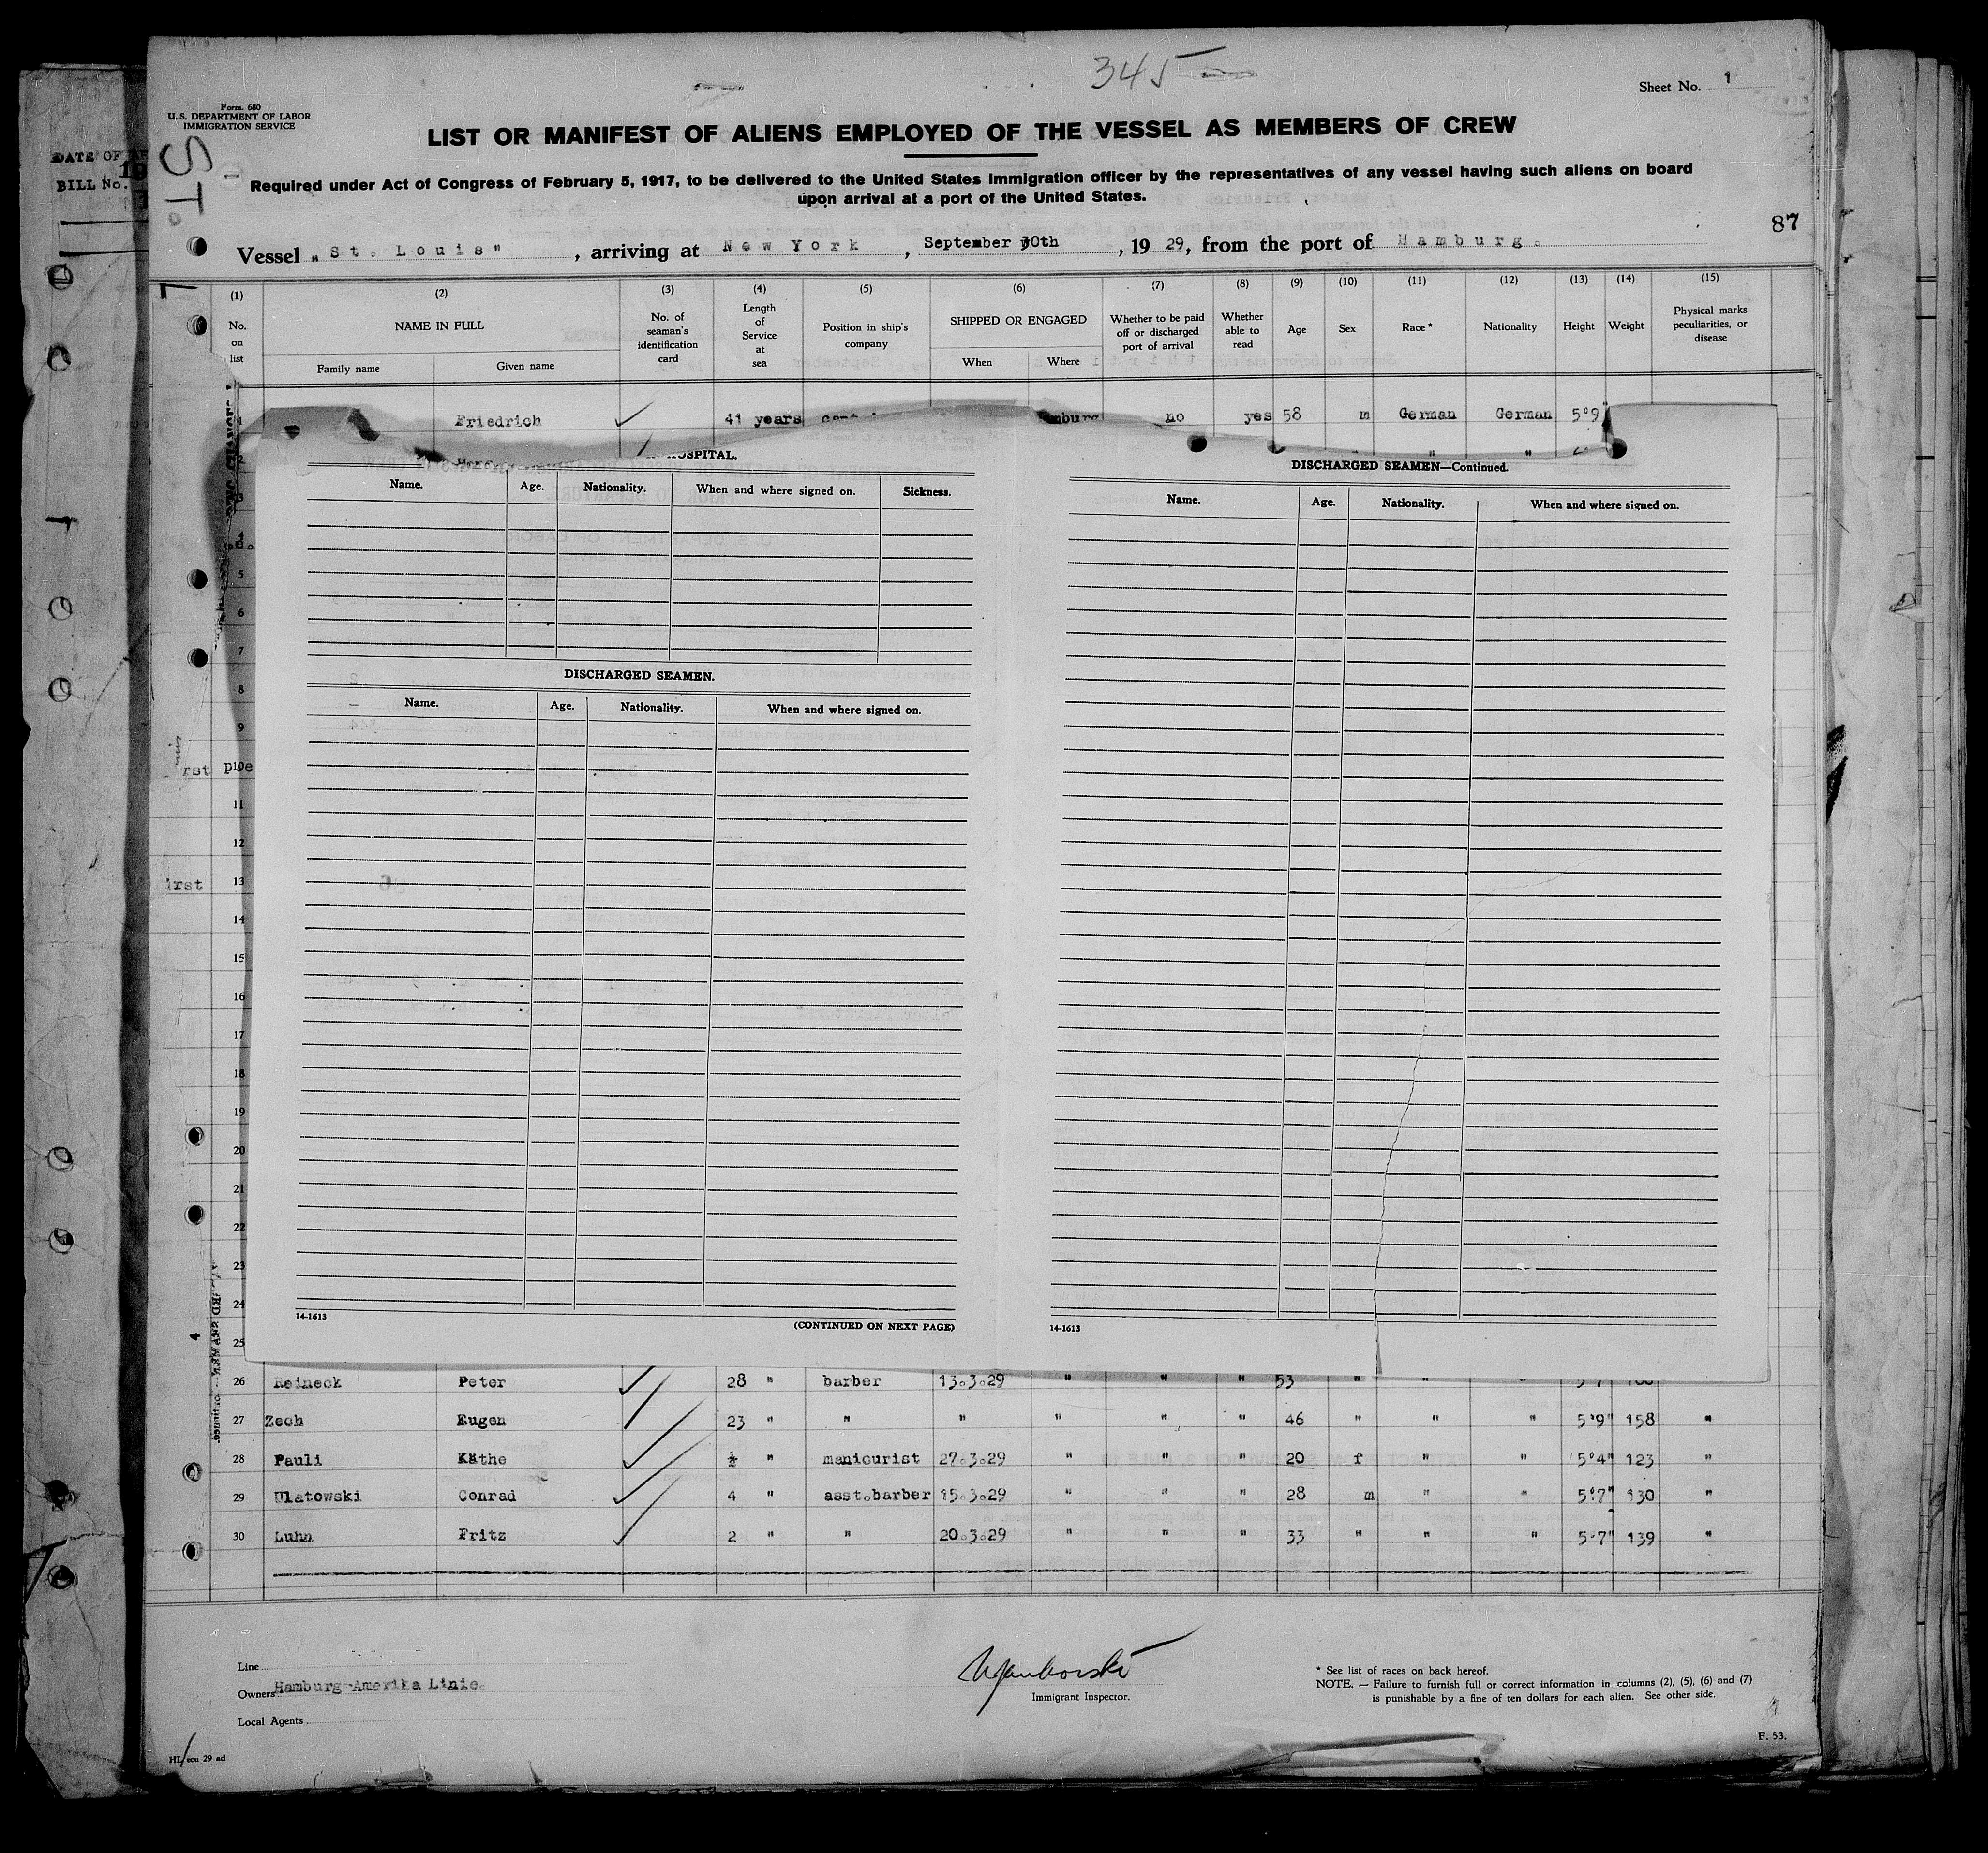 345
Sheet No. 1
Form. 680
U.S. DEPARTMENT OF LABOR
IMMIGRATION SERVICE
LIST OR MANIFEST OF ALIENS EMPLOYED OF THE VESSEL AS MEMBERS OF CREW
Required under Act of Congress of February 5, 1917, to be delivered to the United States immigration officer by the representatives of any vessel having such aliens on board
upon arrival at a port of the United States.
DATE OF
BILL No.
87
Vessel "St. Louis", arriving at New York, September 30th, 1929, from the port of Hamburg.
(1) (2) (3) (4) (5) (6) (7) (8) (9) (10) (11) (12) (13) (14) (15)
No. on list
NAME IN FULL
Family name Given name
No. of seaman's identification card
Length of Service at sea
Position in ship's company
SHIPPED OR ENGAGED
When Where
Whether to be paid off or discharged port of arrival
Whether able to read
Age Sex Race* Nationality Height Weight
Physical marks peculiarities, or disease
1 Friedrich 41 years no yes 58 m German German 5'9
2
HOSPITAL.
Name. Age. Nationality. When and where signed on. Sickness.
DISCHARGED SEAMEN.
Name. Age. Nationality. When and where signed on.
14-1613
(CONTINUED ON NEXT PAGE)
DISCHARGED SEAMEN—Continued.
Name. Age. Nationality. When and where signed on.
14-1613
3
4
5
6
7
8
9
10
11
12
13
14
15
16
17
18
19
20
21
22
23
24
25
26 Reineck Peter 28 " barber 13.3.29 " " " 53 " " "
27 Zech Eugen 23 " " " " " " 46 " " " 5'9" 158 "
28 Pauli Käthe ½ " manicurist 27.3.29 " " " 20 f " " 5'4" 123 "
29 Ulatowski Conrad 4 " asst.barber 15.3.29 " " " 28 m " " 5'7" 130 "
30 Luhn Fritz 2 " " 20.3.29 " " " 33 " " " 5'7" 139 "
Line
Owners Hamburg-Amerika Linie.
Local Agents
Immigrant Inspector.
* See list of races on back hereof.
NOTE. — Failure to furnish full or correct information in columns (2), (5), (6) and (7)
is punishable by a fine of ten dollars for each alien. See other side.
F. 53.
HL ecu 29 ad